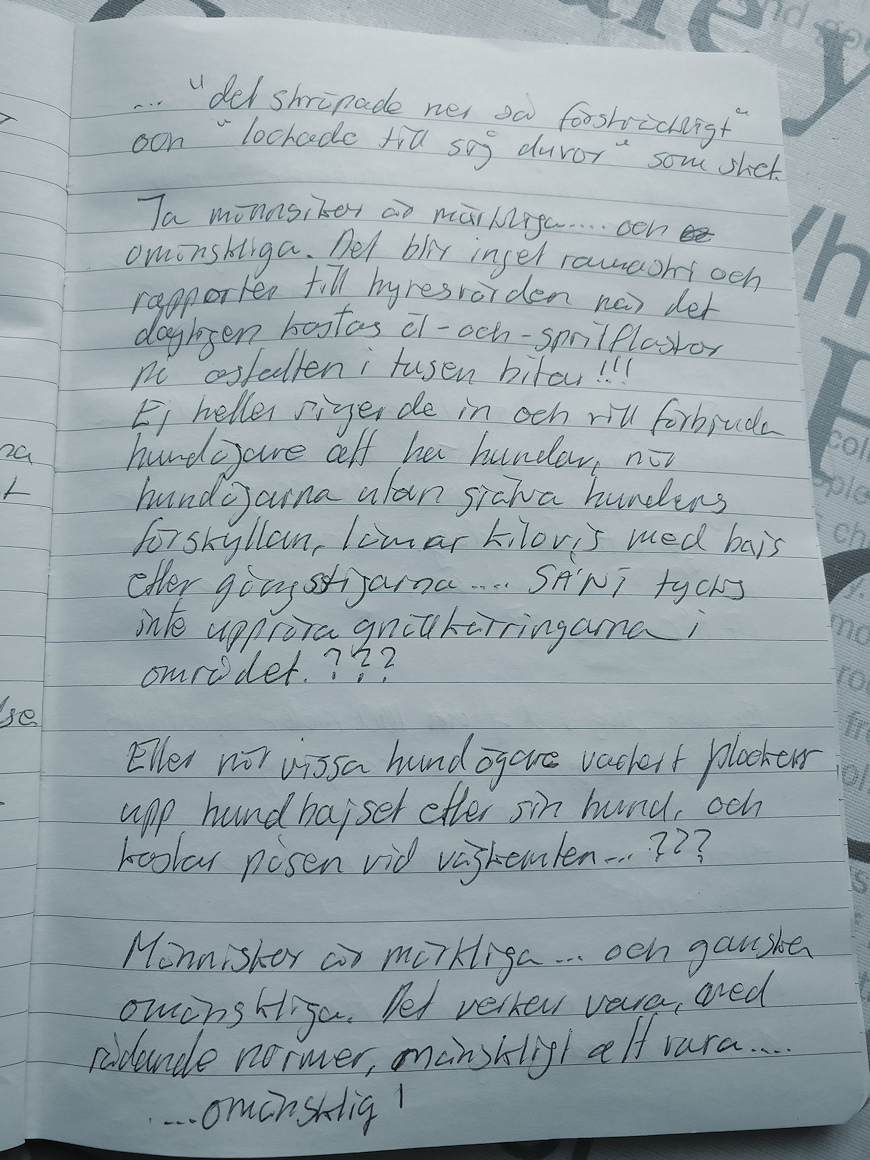 ... "det skräpade ner så förskräckligt"
och "lockade till sig duvor" som sket.
Ja människor är märkliga.... och
omänskliga. Det blir inget ramaskri och
rapporter till hyresvärden när det
dagligen kastas öl-och-spritflaskor
på asfalten i tusen bitar!!!
Ej heller ringer de in och vill förbjuda
hundägare att ha hundar, när
hundägarna utan själva hundens
förskyllan, lämar kilovis med bajs
efter gångstigarna.... SÅNT tycks
inte uppröra gnällkärringarna i
området.???
Eller när vissa hundägare vackert plockar
upp hundbajset efter sin hund, och
kastar påsen vid vägkanten...???
Människor är märkliga... och ganska
omänskliga. Det verkar vara, med
rådande normer, mänskligt att vara....
....omänsklig!
na
t
lse